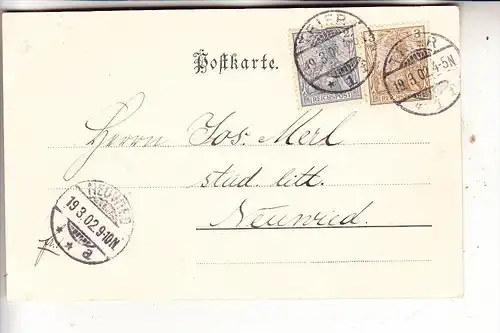 Postkarte.
2
3
REICHSPOST
19.3.02
1
19.3.02 4-5N
Herrn Jos. Merl
stud. litt.
Neuwied.
NEUWIED
19.3.02.9-10N
* * a